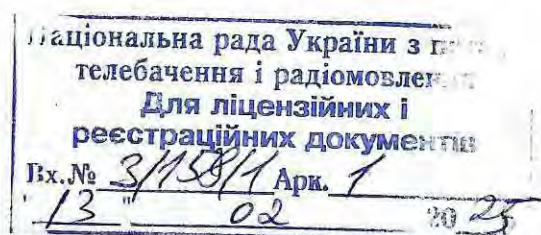 Національна рада України з
телебачення і радіомовлен
Для ліцензійних і
реєстраційних документів
Вх.№ 3/158/1 Арк. 1
"13" 02 20 25